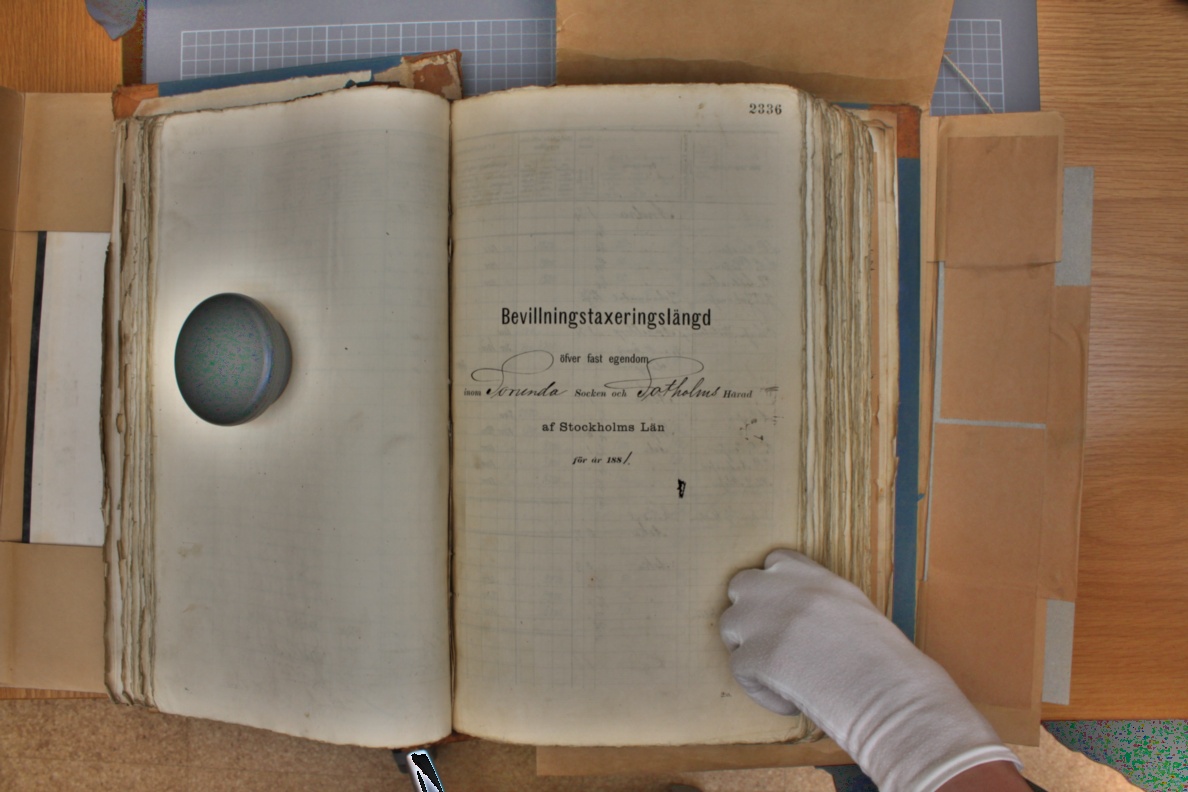 2336
Bevillningstaxeringslängd
öfver fast egendom
inom Sorunda Socken och Sotholms Härad
af Stockholms Län
för år 1881.